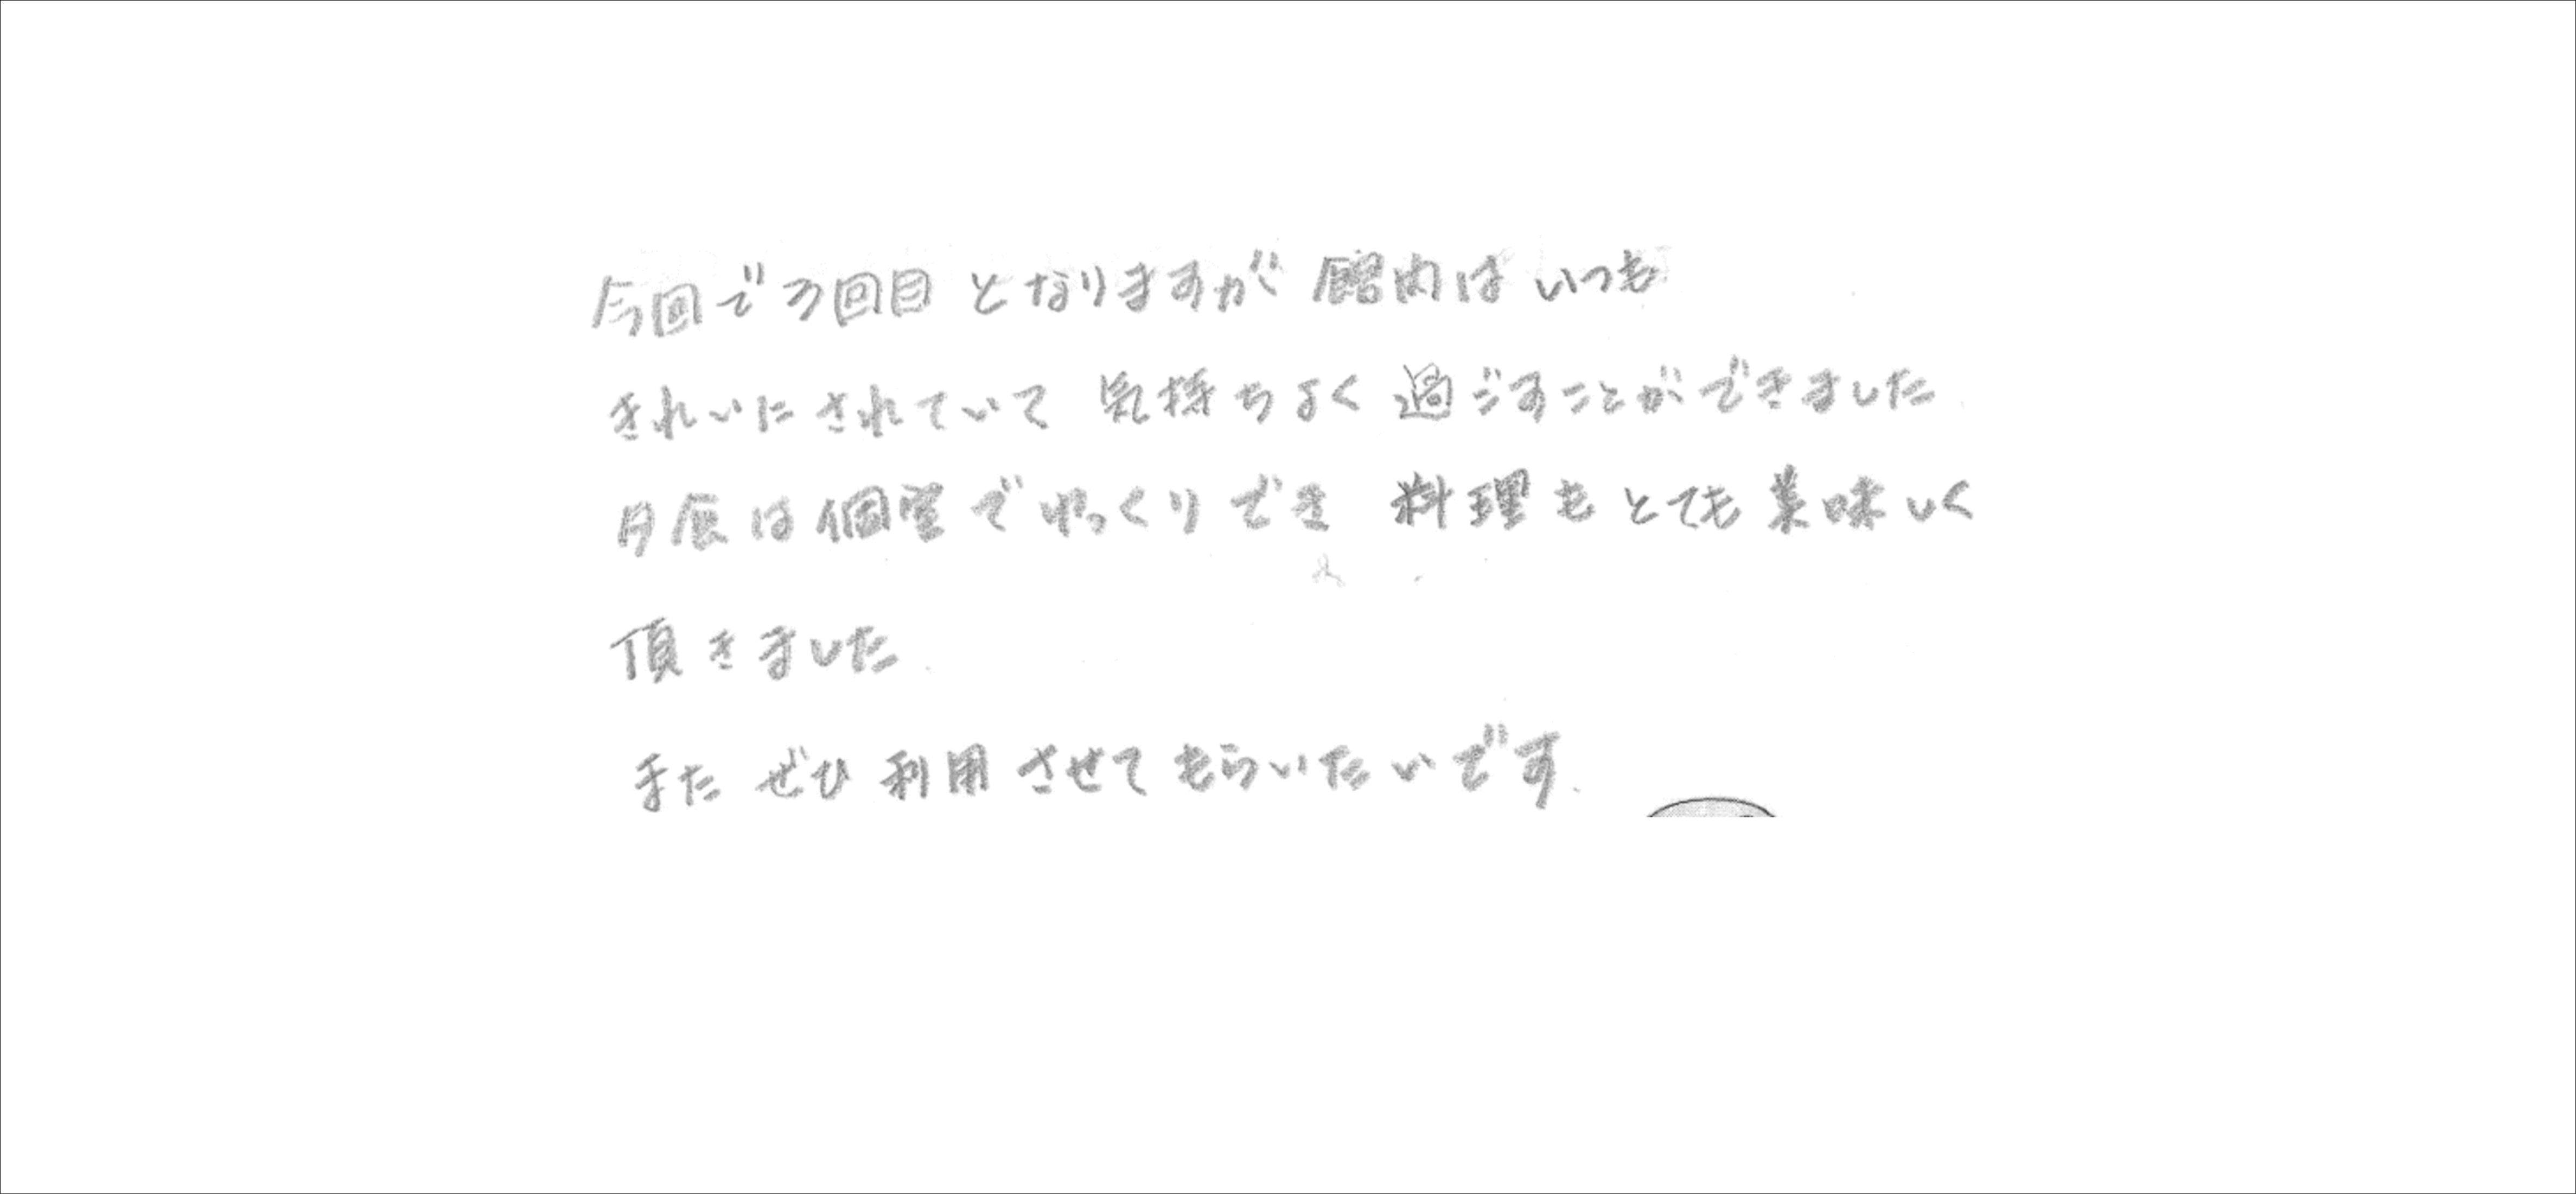 今回で3回目となりますが 館内は いつも
きれいにされていて 気持ちよく 過ごすことができました
夕食は個室でゆっくりでき 料理もとても美味しく
頂きました.
またぜひ利用させてもらいたいです.